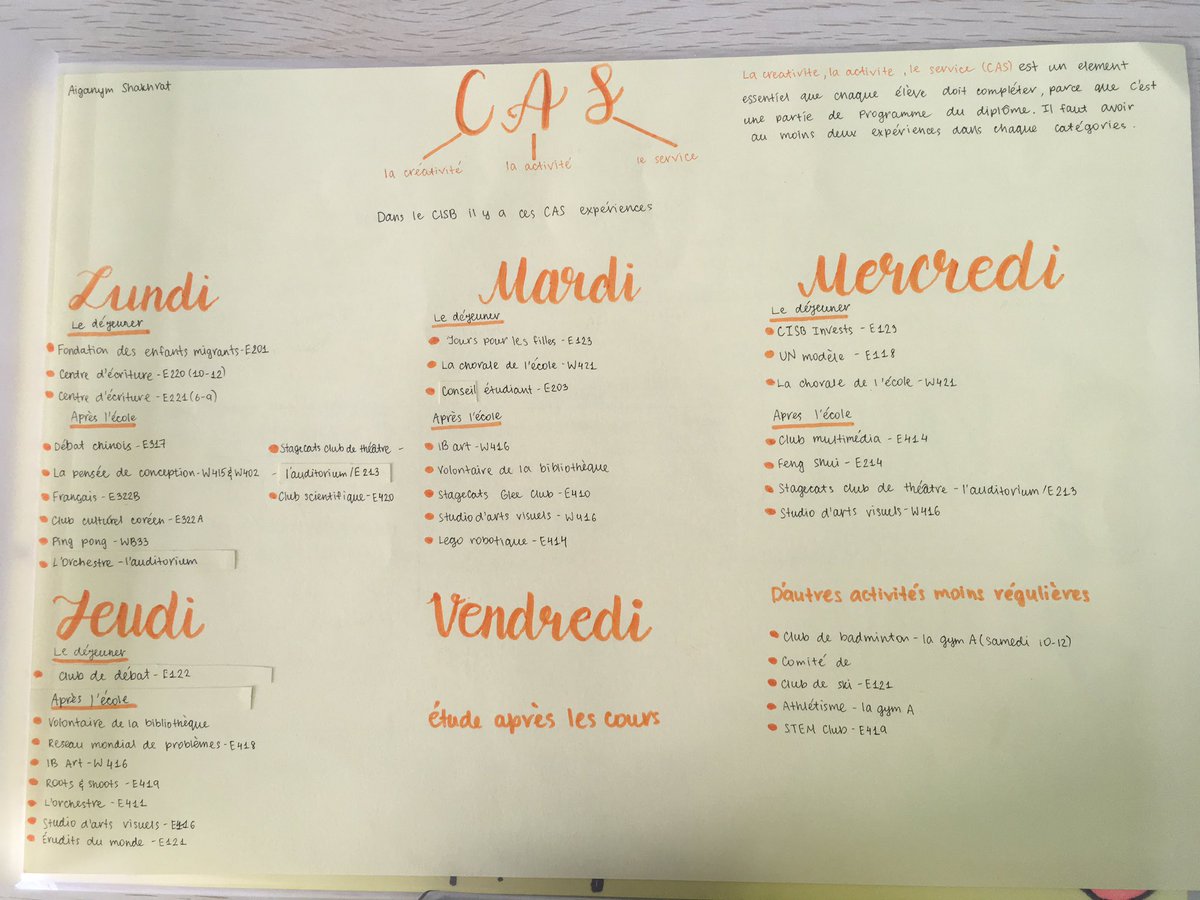 Aiganym Shakhrat
CAS
la créativité
la activité
le service
La creativite, la activite, le service (CAS) est un element
essentiel que chaque élève doit compléter, parce que c'est
une partie de Programme du diplôme. Il faut avoir
au moins deux expériences dans chaque catégories.
Dans le CISB il y a ces CAS expériences
Lundi
Le déjeuner
Fondation des enfants migrants-E201
Centre d'écriture - E220 (10-12)
Centre d'écriture - E221 (6-9)
Après l'école
Débat chinois - E317
La pensée de conception-W415 & W402
Français - E322B
Club culturel coréen - E322A
Ping pong - WB33
L'orchestre - l'auditorium
Stagecats club de théâtre -
- l'auditorium/E213
Club scientifique - E420
Mardi
Le déjeuner
Jours pour les filles - E123
La chorale de l'école - W421
Conseil étudiant - E203
Après l'école
IB art - W416
Volontaire de la bibliothèque
Stagecats Glee Club - E410
Studio d'arts visuels - W416
Lego robotique - E414
Mercredi
Le déjeuner
CISB Invests - E123
UN modèle - E118
La chorale de l'école - W421
Apres l'école
Club multimédia - E414
Feng shui - E214
Stagecats club de théâtre - l'auditorium/E213
Studio d'arts visuels-W416
Jeudi
Le déjeuner
Club de débat - E122
Après l'école
Volontaire de la bibliothèque
Reseau mondial de problèmes - E418
IB Art - W416
Roots & shoots - E419
L'orchestre - E411
Studio d'arts visuels - E416
Érudits du monde - E121
Vendredi
étude après les cours
D'autres activités moins régulières
Club de badminton - la gym A (samedi 10-12)
Comité de
Club de ski - E121
Athlétisme - la gym A
STEM Club - E419